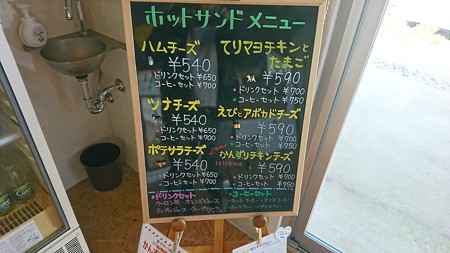 ホットサンドメニュー
ハムチーズ
¥540
・ドリンクセット ¥650
・コーヒーセット ¥700
ツナチーズ
¥540
・ドリンクセット ¥650
・コーヒーセット ¥700
ポテサラチーズ
¥540
・ドリンクセット ¥650
・コーヒーセット ¥700
てりマヨチキンと
たまご
¥590
・ドリンクセット ¥700
・コーヒーセット ¥750
えびとアボカドチーズ
¥590
・ドリンクセット ¥700
・コーヒーセット ¥750
かんずりチキンチーズ
¥590
・ドリンクセット ¥700
・コーヒーセット ¥750
・ドリンクセット
ウーロン茶・オレンジジュース
・コーヒーセット
ホットコーヒー・アイスコーヒー